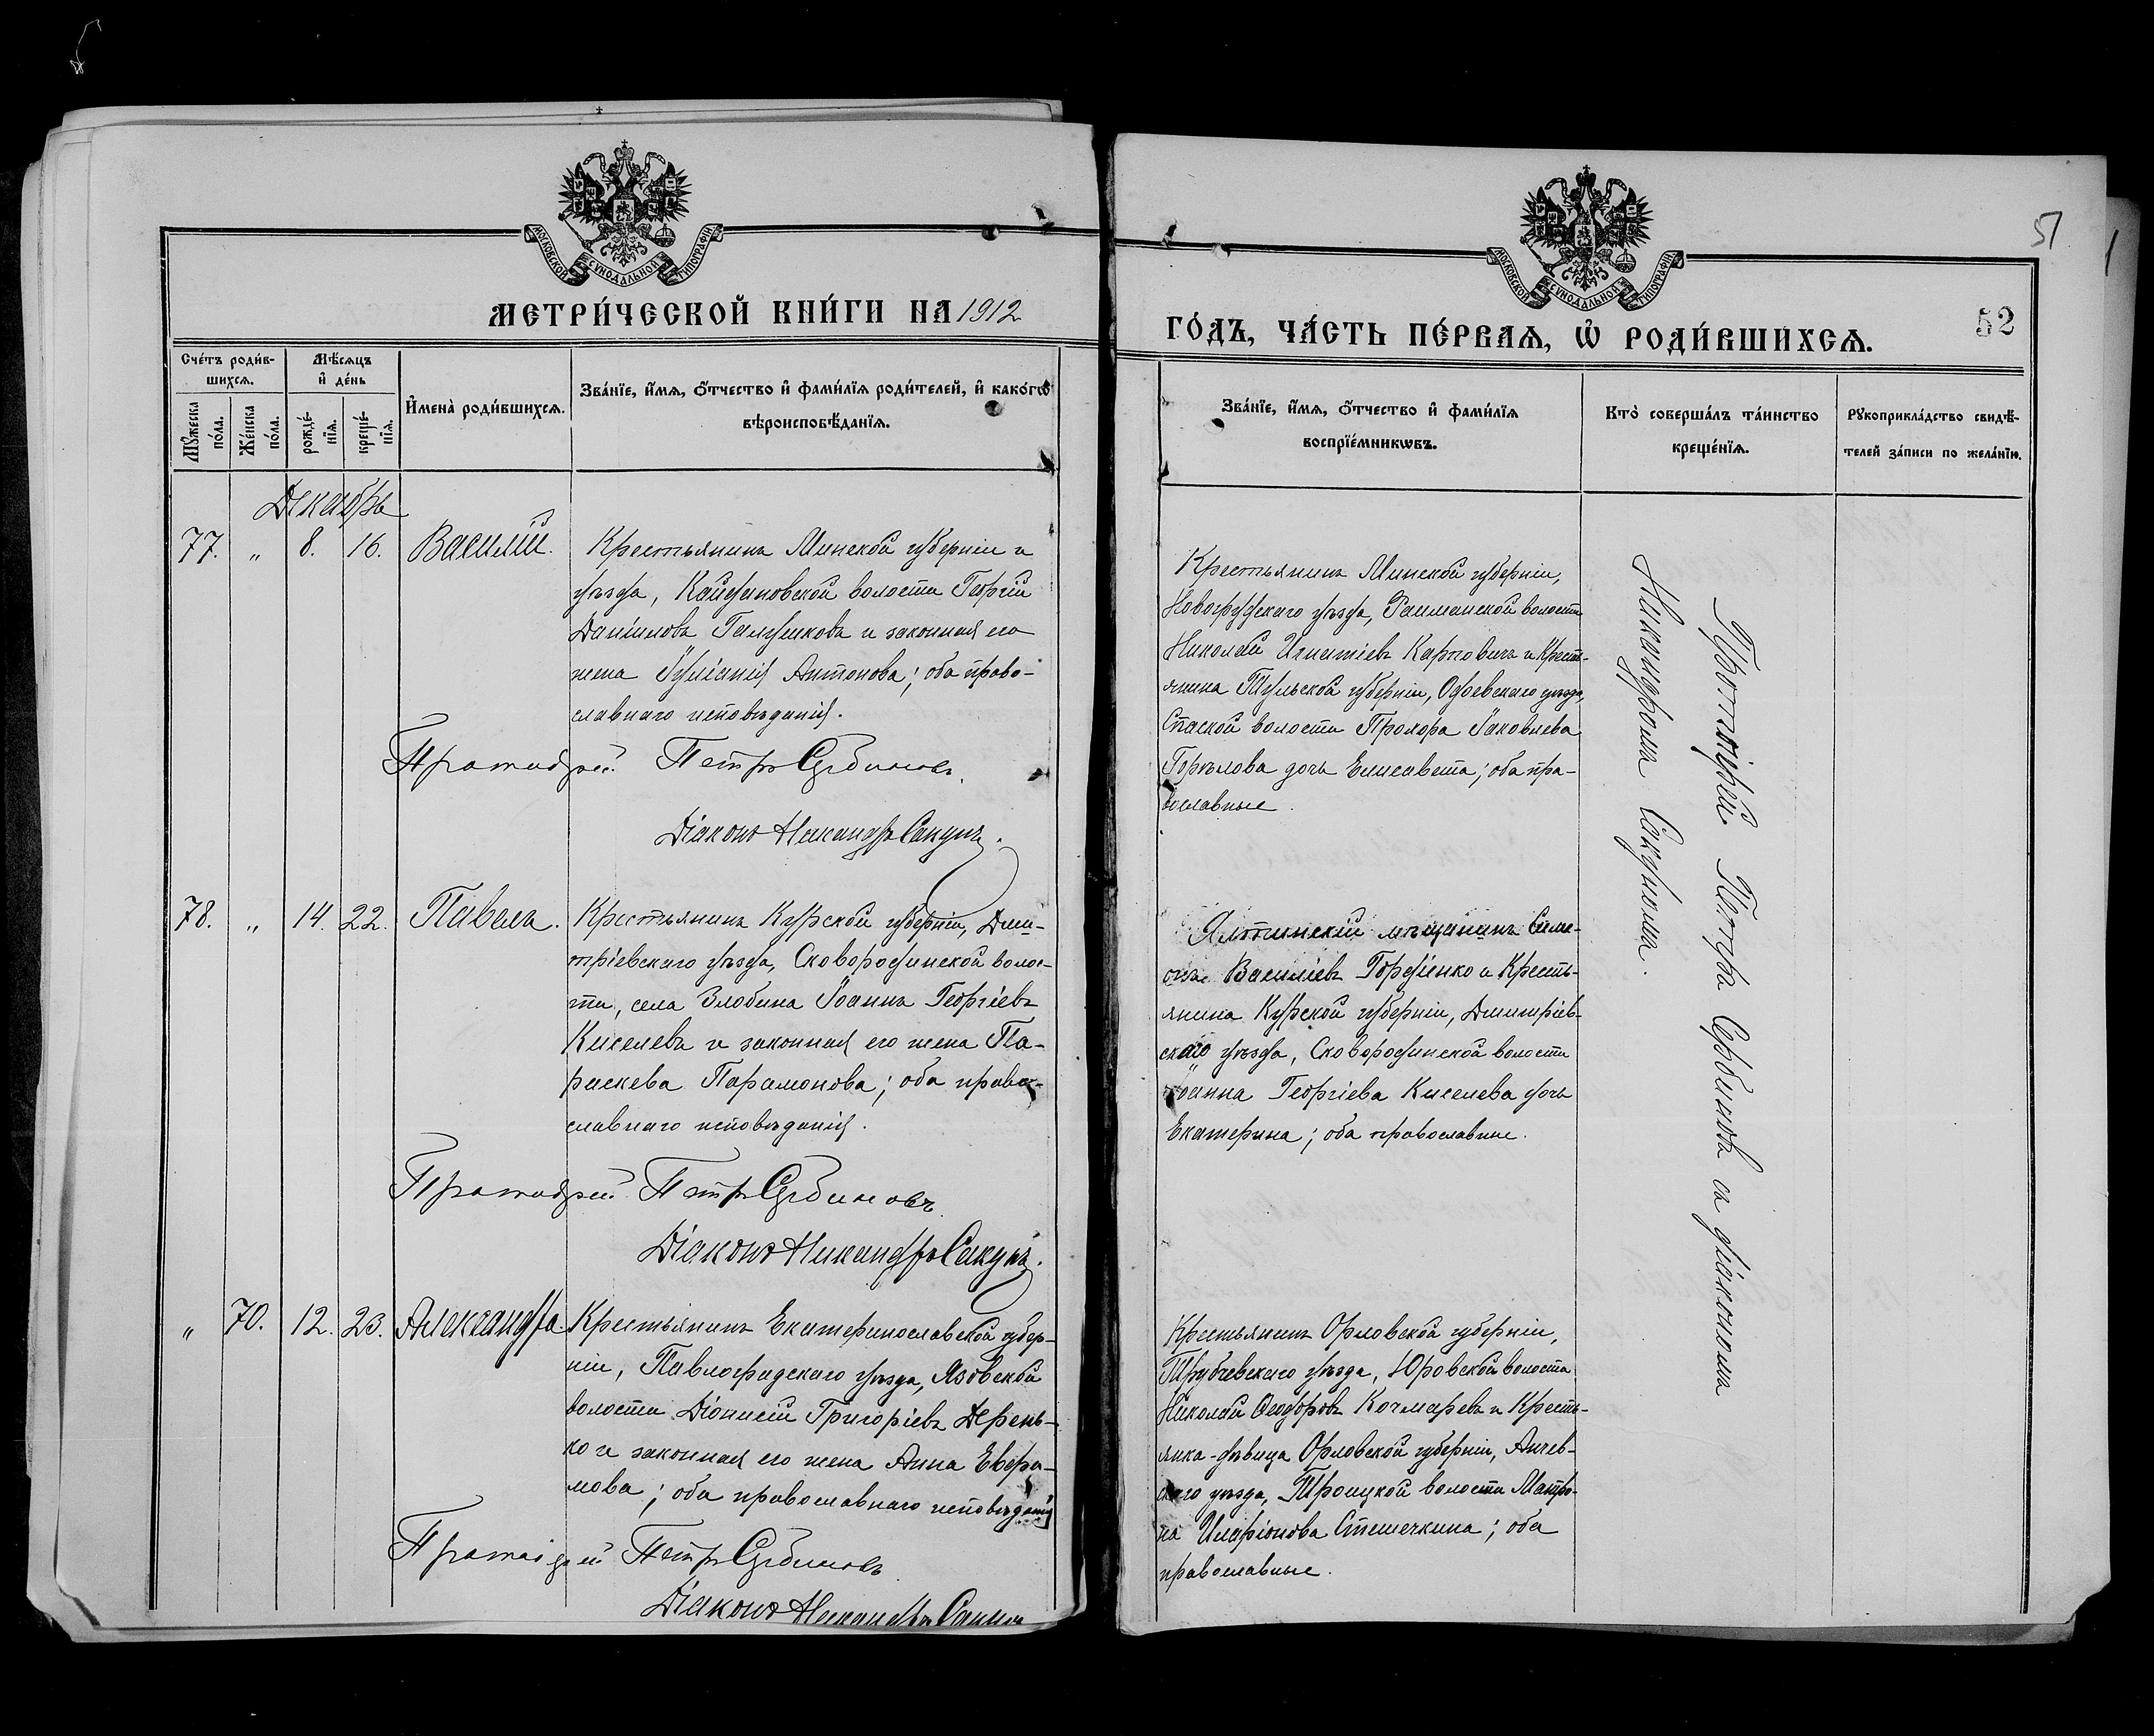 МОСКОВСКОЙ СѴНОДАЛЬНОЙ ТИПОГРАФІИ
МЕТРИ́ЧЕСКОЙ КНИ́ГИ НА 1912
Сче́тъ роди́в-
шихсѧ.
Мꙋ́жеска
по́ла.
Же́нска
по́ла.
Мѣ́сѧцъ
и҆ де́нь
рожде́-
нїѧ.
креще́-
нїѧ.
И҆мена̀ роди́вшихсѧ.
Зва́нїе, и҆́мѧ, ѻ҆́тчество и҆ фами́лїѧ роди́телей, и҆ како́гѡ
вѣроисповѣ́данїѧ.
Декабрь
77. „ 8. 16. Василій.
Крестьянинъ Минской губерніи и
уѣзда, Койдановской волости Георгій
Даніиловъ Галушковъ и законная его
жена Іуліанія Антонова; оба право-
славнаго исповѣданія.
Протоіерей Петръ Сербиновъ.
Діаконъ Никандръ Сакунъ.
78. „ 14. 22. Павелъ.
Крестьянинъ Курской губерніи, Дми-
тріевскаго уѣзда, Сковородинской волос-
ти, села Злобина Іоаннъ Георгіевъ
Киселевъ и законная его жена Па-
раскева Парамонова; оба право-
славнаго исповѣданія.
Протоіерей Петръ Сербиновъ
Діаконъ Никандръ Сакунъ.
„ 70. 12. 23. Александра.
Крестьянинъ Екатеринославской губер-
ніи, Павлоградскаго уѣзда, Язовской
волости Діонисій Григоріевъ Дерень-
ко и законная его жена Анна Евфра-
мова; оба православнаго исповѣданія
Протоіерей Петръ Сербиновъ
Діаконъ Никандръ Сакунъ
51
МОСКОВСКОЙ СѴНОДАЛЬНОЙ ТИПОГРАФІИ
ГО́ДЪ, ЧА́СТЬ ПЕ́РВАѦ, Ѡ҆ РОДИ́ВШИХСѦ.
52
Зва́нїе, и҆́мѧ, ѻ҆́тчество и҆ фами́лїѧ
воспрїе́мникѡвъ.
Кто̀ соверша́лъ та́инство
креще́нїѧ.
Рꙋкоприкла́дство свидѣ́-
телей за́писи по жела́нїю.
Крестьянинъ Минской губерніи,
Новогрудскаго уѣзда, волости
Николай Игнатіевъ Карповичъ и Кресть-
янина Тульской губерніи, Одоевскаго уѣзда,
Спаской волости Прохора Іаковлева
Горѣлова дочь Елисавета; оба пра-
вославные.
Ялтинскій мѣщанинъ Симе-
онъ Василіевъ Гордіенко и Кресть-
янина Курской губерніи, Дмитріев-
скаго уѣзда, Сковородинской волости
Іоанна Георгіева Киселева дочь
Екатерина; оба православные.
Крестьянинъ Орловской губерніи,
Трубчевскаго уѣзда, Юровской волости
Николай Ѳеодоровъ Кочмаревъ и Кресть-
янка-дѣвица Орловской губерніи,
скаго уѣзда, Троицкой волости Матро-
на Иларіонова Стешечкина; оба
православные.
Протоіерей Петръ Сербиновъ съ діакономъ
Никандромъ Сакуномъ.